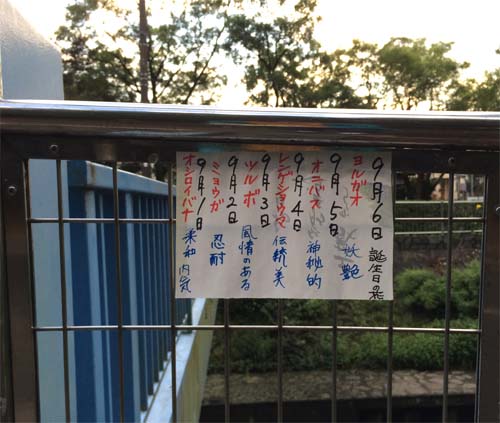 9月6日 誕生日の花
ヨルガオ 妖艶
9月5日
オニバス 神秘的
9月4日
レンゲショウマ 伝統美
9月3日
ツルボ 風情のある
9月2日
ミョウガ 忍耐
9月1日
オシロイバナ 柔和 内気